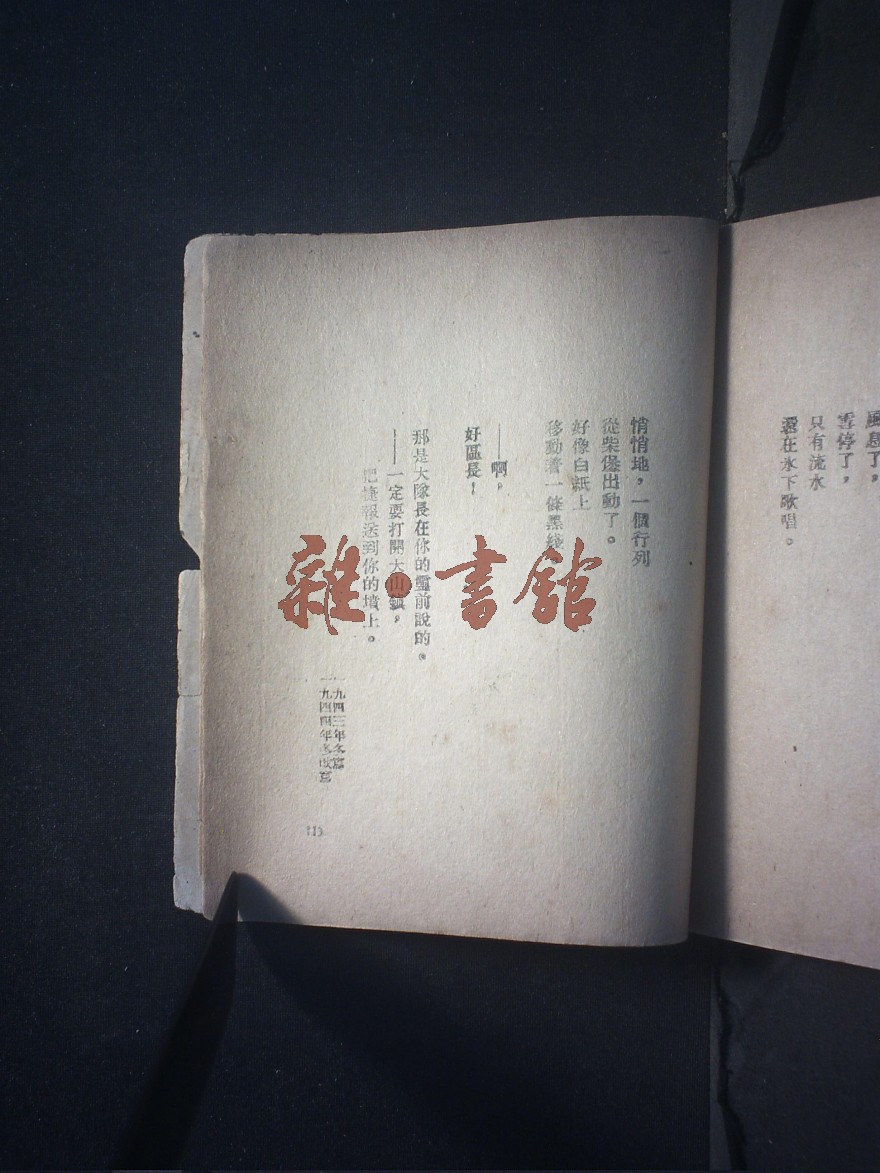 風息了，
雪停了，
只有流水
還在氷下歌唱。
悄悄地，一個行列
從柴堡出動了。
好像白紙上
移動着一條黑綫
——啊。
好區長！
那是大隊長在你的靈前說的。
——一定要打開大山鎮，
把捷報送到你的墳上。
一九四三年冬寫
一九四四年冬改寫
雜·書館